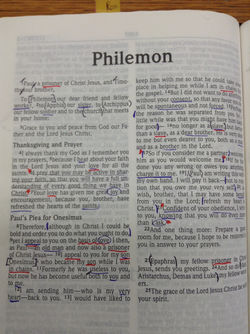 Philemon
¹Paul, a prisoner of Christ Jesus, and Timo-
thy our brother,
To Philemon our dear friend and fellow
worker, ²to Apphia our sister, to Archippus
our fellow soldier and to the church that meets
in your home:
³Grace to you and peace from God our Fa-
ther and the Lord Jesus Christ.
Thanksgiving and Prayer
⁴I always thank my God as I remember you
in my prayers, ⁵because I hear about your faith
in the Lord Jesus and your love for all the
saints. ⁶I pray that you may be active in shar-
ing your faith, so that you will have a full
understanding of every good thing we have in
Christ. ⁷Your love has given me great joy and
encouragement, because you, brother, have
refreshed the hearts of the saints.
Paul's Plea for Onesimus
⁸Therefore, although in Christ I could be
bold and order you to do what you ought to do,
⁹yet I appeal to you on the basis of love. I then,
as Paul—an old man and now also a prisoner
of Christ Jesus— ¹⁰I appeal to you for my son
Onesimus, who became my son while I was
in chains. ¹¹Formerly he was useless to you,
but now he has become useful both to you and
to me.
¹²I am sending him—who is my very
heart—back to you. ¹³I would have liked to
keep him with me so that he could take your
place in helping me while I am in chains for
the gospel. ¹⁴But I did not want to do anything
without your consent, so that any favor you do
will be spontaneous and not forced. ¹⁵Perhaps
the reason he was separated from you for a
little while was that you might have him back
for good— ¹⁶no longer as a slave, but better
than a slave, as a dear brother. He is very dear
to me but even dearer to you, both as a man
and as a brother in the Lord.
¹⁷So if you consider me a partner, welcome
him as you would welcome me. ¹⁸If he has
done you any wrong or owes you anything,
charge it to me. ¹⁹I, Paul, am writing this with
my own hand. I will pay it back—not to men-
tion that you owe me your very self. ²⁰I do
wish, brother, that I may have some benefit
from you in the Lord; refresh my heart in
Christ. ²¹Confident of your obedience, I write
to you, knowing that you will do even more
than I ask.
²²And one thing more: Prepare a guest
room for me, because I hope to be restored to
you in answer to your prayers.
²³Epaphras, my fellow prisoner in Christ
Jesus, sends you greetings. ²⁴And so do Mark,
Aristarchus, Demas and Luke, my fellow workers.
²⁵The grace of the Lord Jesus Christ be with
your spirit.